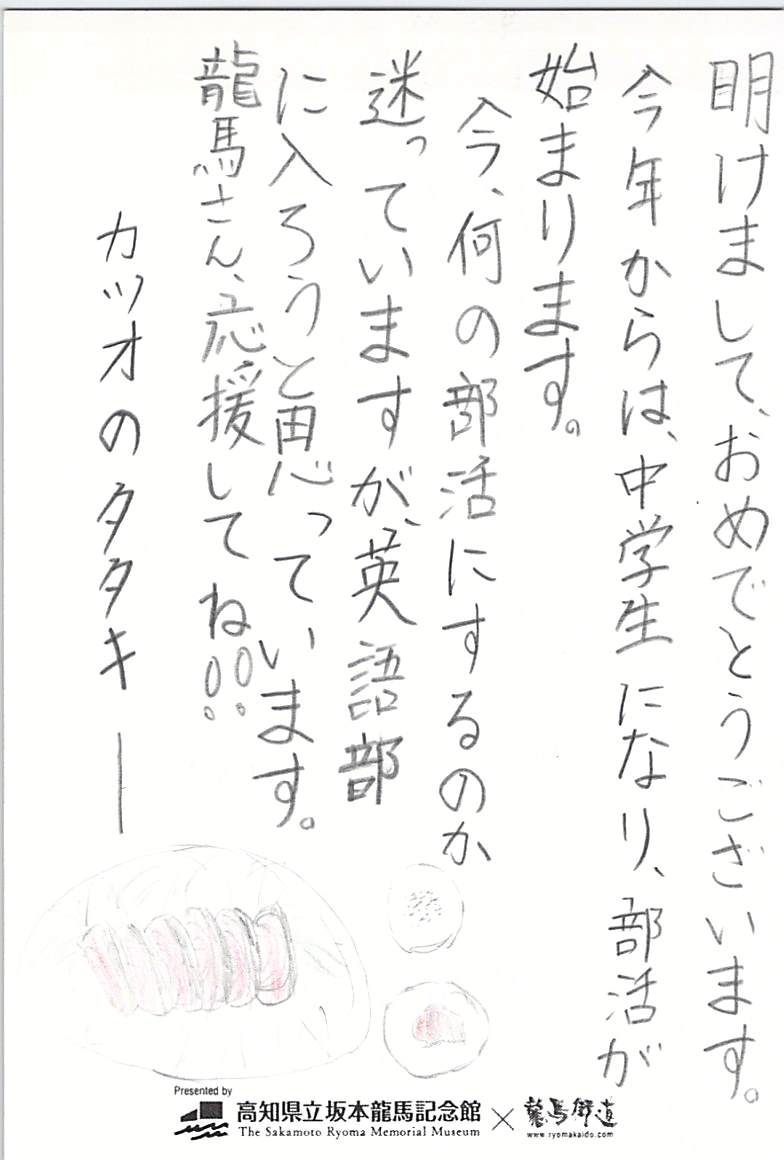 明けまして、おめでとうございます。
今年からは、中学生になり、部活が
始まります。
今、何の部活にするのか
迷っていますが、英語部
に入ろうと思っています。
龍馬さん、応援してね!!
カツオのタタキー
Presented by
高知県立坂本龍馬記念館
The Sakamoto Ryoma Memorial Museum
×
龍馬街道
www.ryomakaido.com